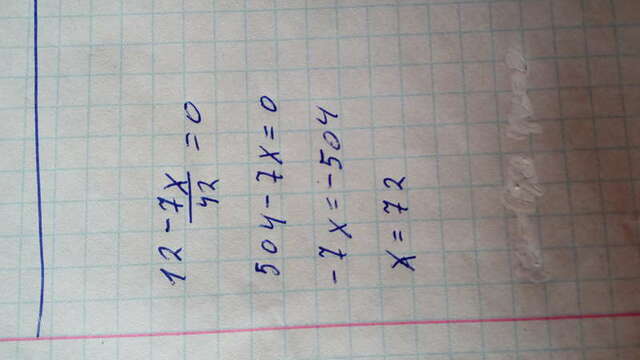 12 - 7x/42 = 0
504 - 7x = 0
-7x = -504
x = 72